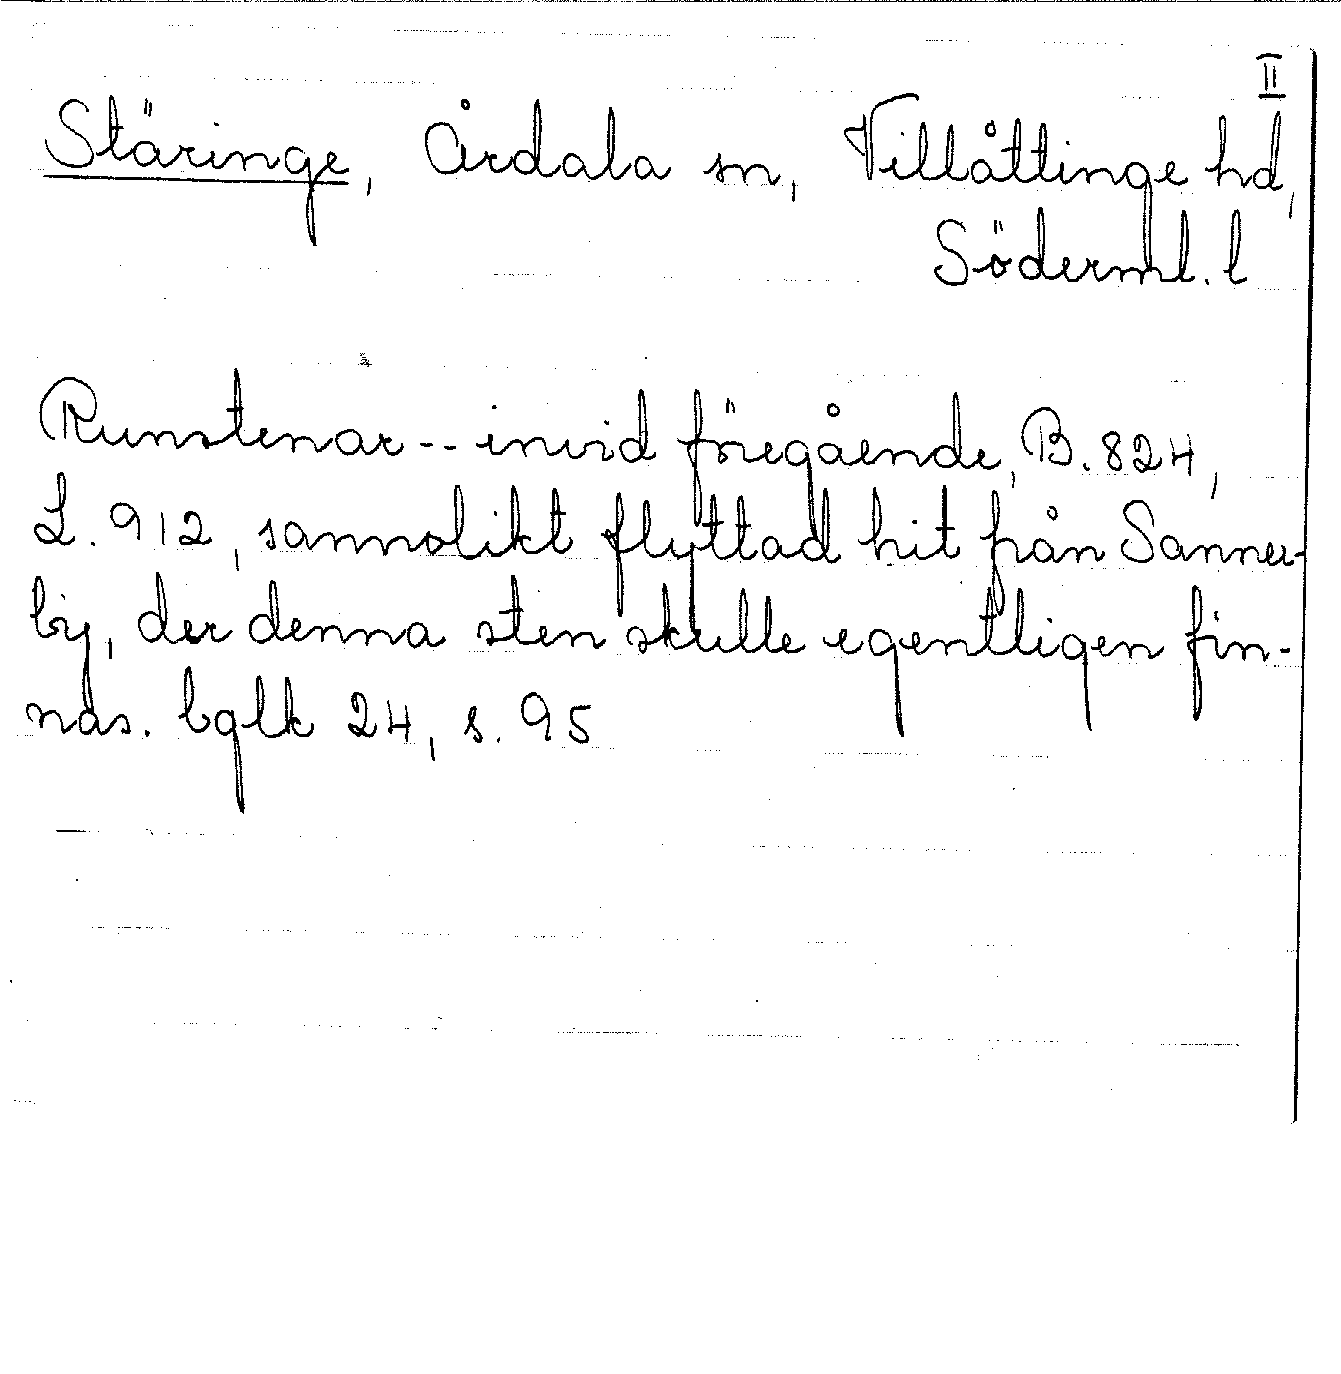 II
Stäringe, Årdala sn, Villåttinge hd,
Söderml. l
Runstenar -- invid föregående, B. 824,
L. 912, sannolikt flyttad hit från Sanner-
by, der denna sten skulle egentligen fin-
nas. bglk 24, s. 95